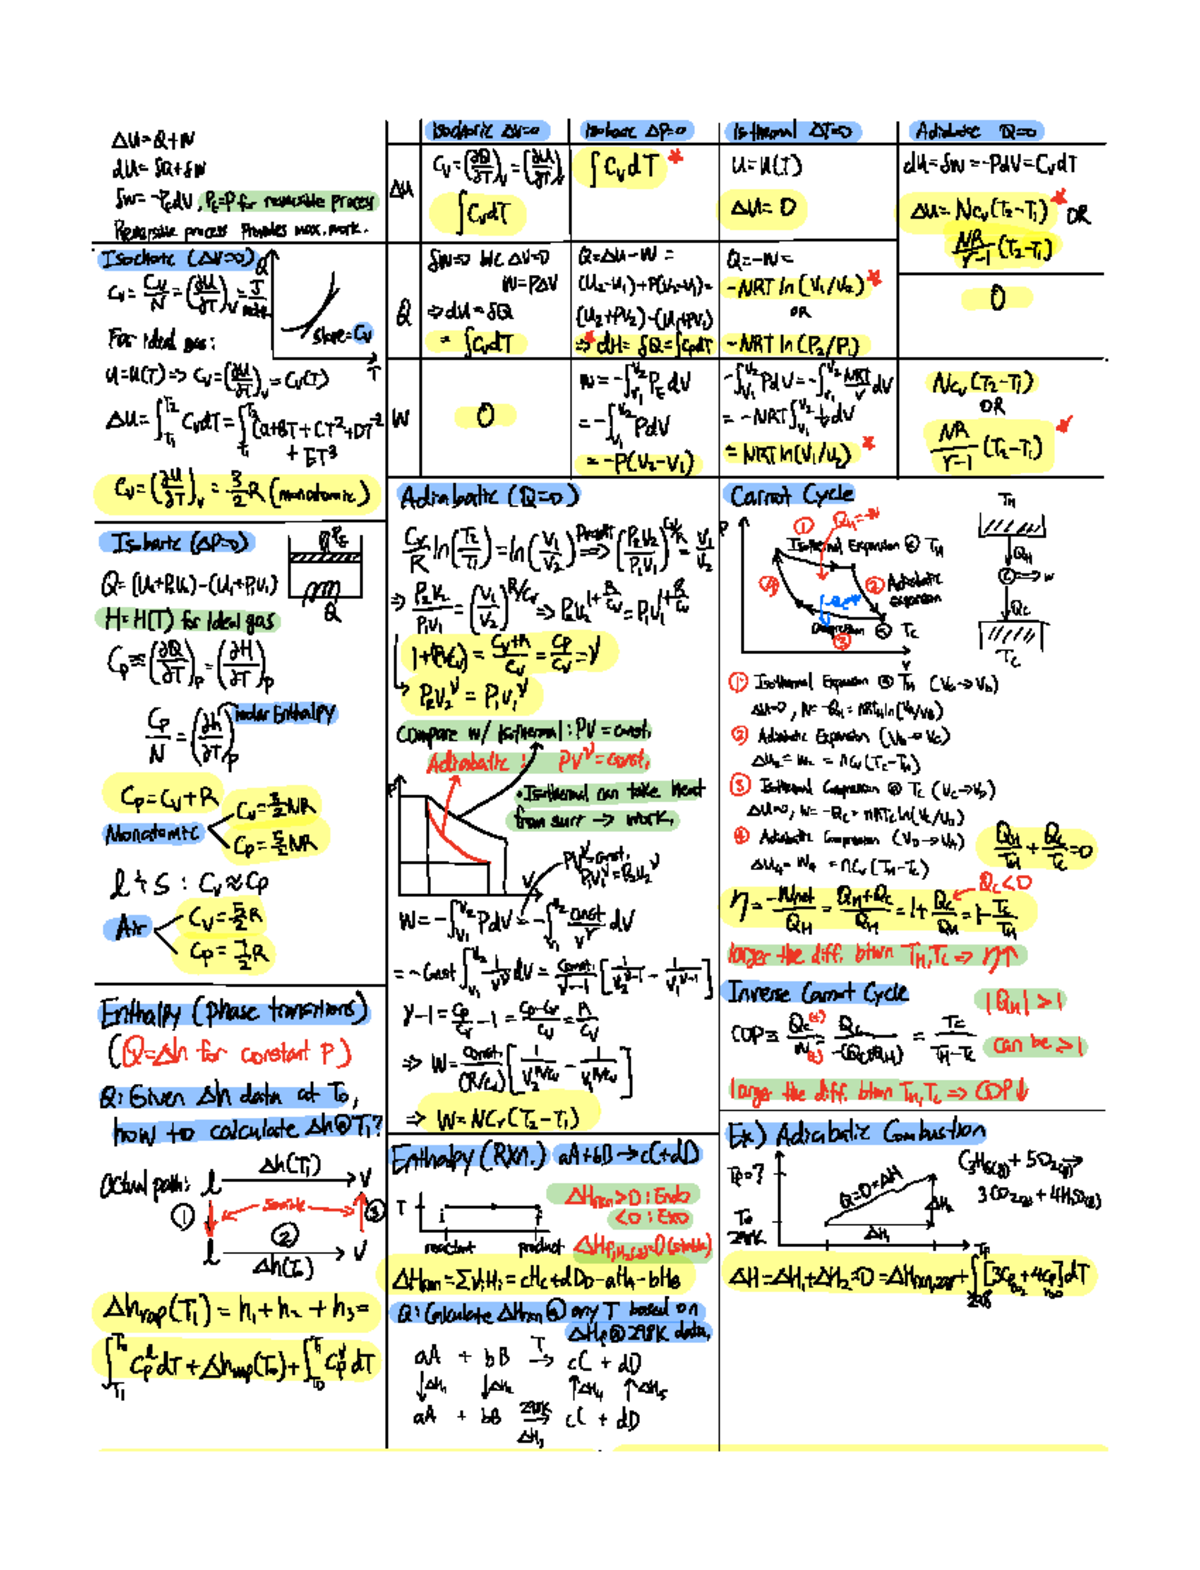 ΔU=Q+W
dU= δQ+δW
δW=-PEdV, PE=P for reversible process
Reversible process Provides max. work.
Isochoric ΔV=0
Isobaric ΔP=0
Isothermal ΔT=0
Adiabatic Q=0
ΔU
Cv=(∂Q/∂T)v=(∂U/∂T)v
∫CvdT
∫CvdT *
U=U(T)
ΔU=0
dU=δW=-PdV=CvdT
ΔU=NCv(T2-T1)* OR
NR/γ-1 (T2-T1)
Q
δW=0 b/c ΔV=0
W=PΔV
⇒dU=δQ
= ∫CvdT
Q=ΔU-W=
(U2-U1)+P(V2-V1)=
(U2+PV2)-(U1+PV1)
⇒ dH= δQ=∫CpdT
Q=-W=
-NRT ln(V1/V2) *
OR
-NRT ln(P2/P1)
0
W
0
W=-∫V1V2 PE dV
=-∫V1V2 PdV
=-P(V2-V1)
-∫V1V2 PdV=-∫V1V2 NRT/V dV
=-NRT∫V1V2 1/V dV
=NRT ln(V1/V2) *
NCv(T2-T1)
OR
NR/γ-1 (T2-T1) *
Isochoric (ΔV=0)
Q
slope=Cv
T
For ideal gas:
U=U(T)⇒Cv=(∂U/∂T)v=Cv(T)
ΔU=∫T1T2 CvdT=∫T1T2 (a+BT+CT²+DT⁻²
+ET³
Cv=(∂U/∂T)v=3/2R(monatomic)
Isobaric (ΔP=0)
PE
Q
Q=(U2+P2V2)-(U1+P1V1)
H=H(T) for ideal gas
Cp≡(∂Q/∂T)p=(∂H/∂T)p
Cp/N=(∂h/∂T)p molar Enthalpy
Cp=Cv+R
Monatomic
Cv=3/2NR
Cp=5/2NR
l & s : Cv≈Cp
Air
Cv=5/2R
Cp=7/2R
Enthalpy (phase transitions)
(Q=Δh for constant P)
Q:Given Δh data at T0,
how to calculate Δh@T1?
Actual path:
l Δh(T1) V
① sensible ③
②
l V
Δh(T0)
Δhvap(T1)=h1+h2+h3=
∫T1T0 CpldT+Δhvap(T0)+∫T0T1 CpvdT
Adiabatic (Q=0)
Cv/R ln(T2/T1)=ln(V1/V2) ⇒ (P2V2/P1V1)^Cv/R=V1/V2
⇒ P2V2/P1V1=(V1/V2)^R/Cv ⇒ P2V2^1+R/Cv=P1V1^1+R/Cv
1+(R/Cv)=Cv+R/Cv=Cp/Cv=γ
P2V2^γ=P1V1^γ
Compare w/ isothermal:PV=const.
Adiabatic: PV^γ=const.
P
•Isothermal can take heat
from surr → work.
V
PV^γ=const.
P1V1^γ=P2V2^γ
W=-∫V1V2 PdV=-∫V1V2 const/V^γ dV
=-Const∫V1V2 1/V^γ dV=const./γ-1[1/V2^γ-1 - 1/V1^γ-1]
γ-1=Cp/Cv-1=Cp-Cv/Cv=R/Cv
⇒ W=const./(R/Cv)[1/V2^R/Cv - 1/V1^R/Cv]
⇒ W=NCv(T2-T1)
Enthalpy (RXn.) aA+bB→cC+dD
T
i f
reactant product
ΔHrxn>0:Endo
<0:Exo
ΔHrxn=ΣviHi=cHc+dHD-aHA-bHB
Q:Calculate ΔHrxn@any T based on
ΔHf@298K data.
aA + bB T→ cC + dD
↓ΔH1 ↓ΔH2 ↑ΔH4 ↑ΔH5
aA + bB 298K→ cC + dD
ΔH3
Carnot Cycle
P
① QH=-W
Isothermal Expansion @ TH
④
② Adiabatic
expansion
③ @ TC
V
TH
QH
W
QC
TC
① Isothermal Expansion @ TH (VA→VB)
ΔU=0, W=-QH=NRTHln(VA/VB)
② Adiabatic Expansion (VB→VC)
ΔU2=W2=NCv(TC-TH)
③ Isothermal Compression @ TC (VC→VD)
ΔU=0, W=-QC=NRTCln(VC/VD)
④ Adiabatic Compression (VD→VA)
ΔU4=W4=NCv(TH-TC)
QH/TH+QC/TC=0
QC<0
η=-Wnet/QH=QH+QC/QH=1+QC/QH=1-TC/TH
larger the diff. btwn TH,TC⇒η↑
Inverse Carnot Cycle
|QH|>1
COP≡QC(+)/W(+)=QC/-(QC+QH)=TC/TH-TC
can be ≥1
larger the diff. btwn TH,TC⇒COP↓
Ex) Adiabatic Combustion
Tp=?
T0
298K
Q=0=ΔH
ΔH2
ΔH1
C3H8(g)+5O2(g)→
3CO2(g)+4H2O(g)
ΔH=ΔH1+ΔH2=0=ΔHrxn,298+∫298Tp[3Cp,CO2+4Cp,H2O]dT